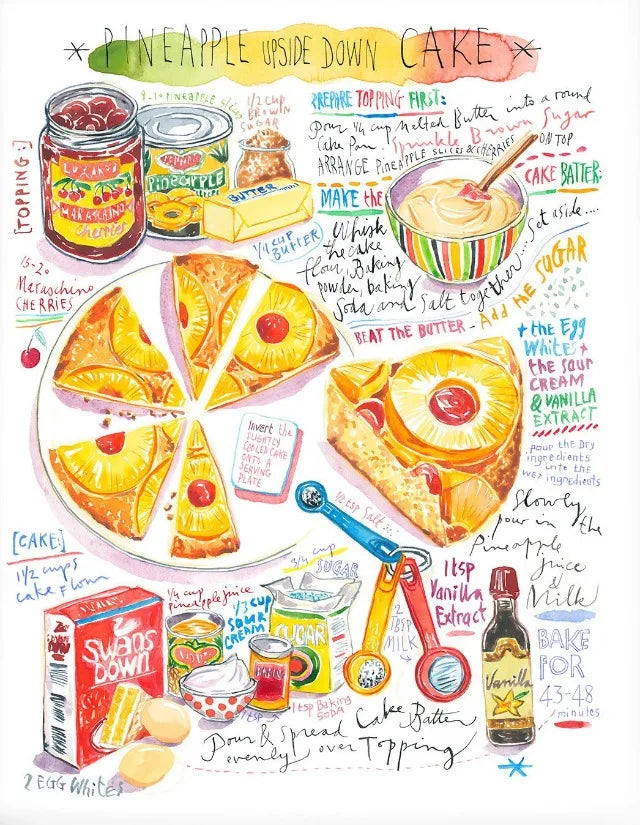 * PINEAPPLE UPSIDE DOWN CAKE *
[TOPPING:]
LUXARDO
MARASCHINO
Cherries
15-20
Maraschino
CHERRIES
8-10 PINEAPPLE slices
Pineapple
1/2 CUP
BROWN
SUGAR
BUTTER
1/4 CUP
BUTTER
PREPARE TOPPING FIRST:
Pour 1/4 cup Melted Butter into a round
Cake Pan. Sprinkle Brown Sugar
ON TOP
ARRANGE PINEAPPLE SLICES & CHERRIES
MAKE the
CAKE BATTER:
Whisk
the cake
flour, Baking
powder, baking
Soda and Salt together... Set aside....
BEAT THE BUTTER - Add the SUGAR
+ the Egg
Whites +
the SOUR
CREAM
& VANILLA
EXTRACT
pour the DRY
ingredients
into the
WET ingredients
Slowly
pour in the
Pineapple
Juice
&
Milk
BAKE
FOR
43-48
minutes
Invert the
SLIGHTLY
COOLED CAKE
ONTO A
SERVING
PLATE
[CAKE:]
1 1/2 cups
cake flour
SWANS
DOWN
2 EGG Whites
1/4 cup
pineapple juice
1/3 CUP
SOUR
CREAM
3/4 cup
SUGAR
SUGAR
BAKING
1 tsp
1 tsp Baking
SODA
1/2 tsp Salt
2
TBSP
MILK
1 tsp
Vanilla
Extract
Vanilla
Pour & Spread Cake Batter
evenly over Topping